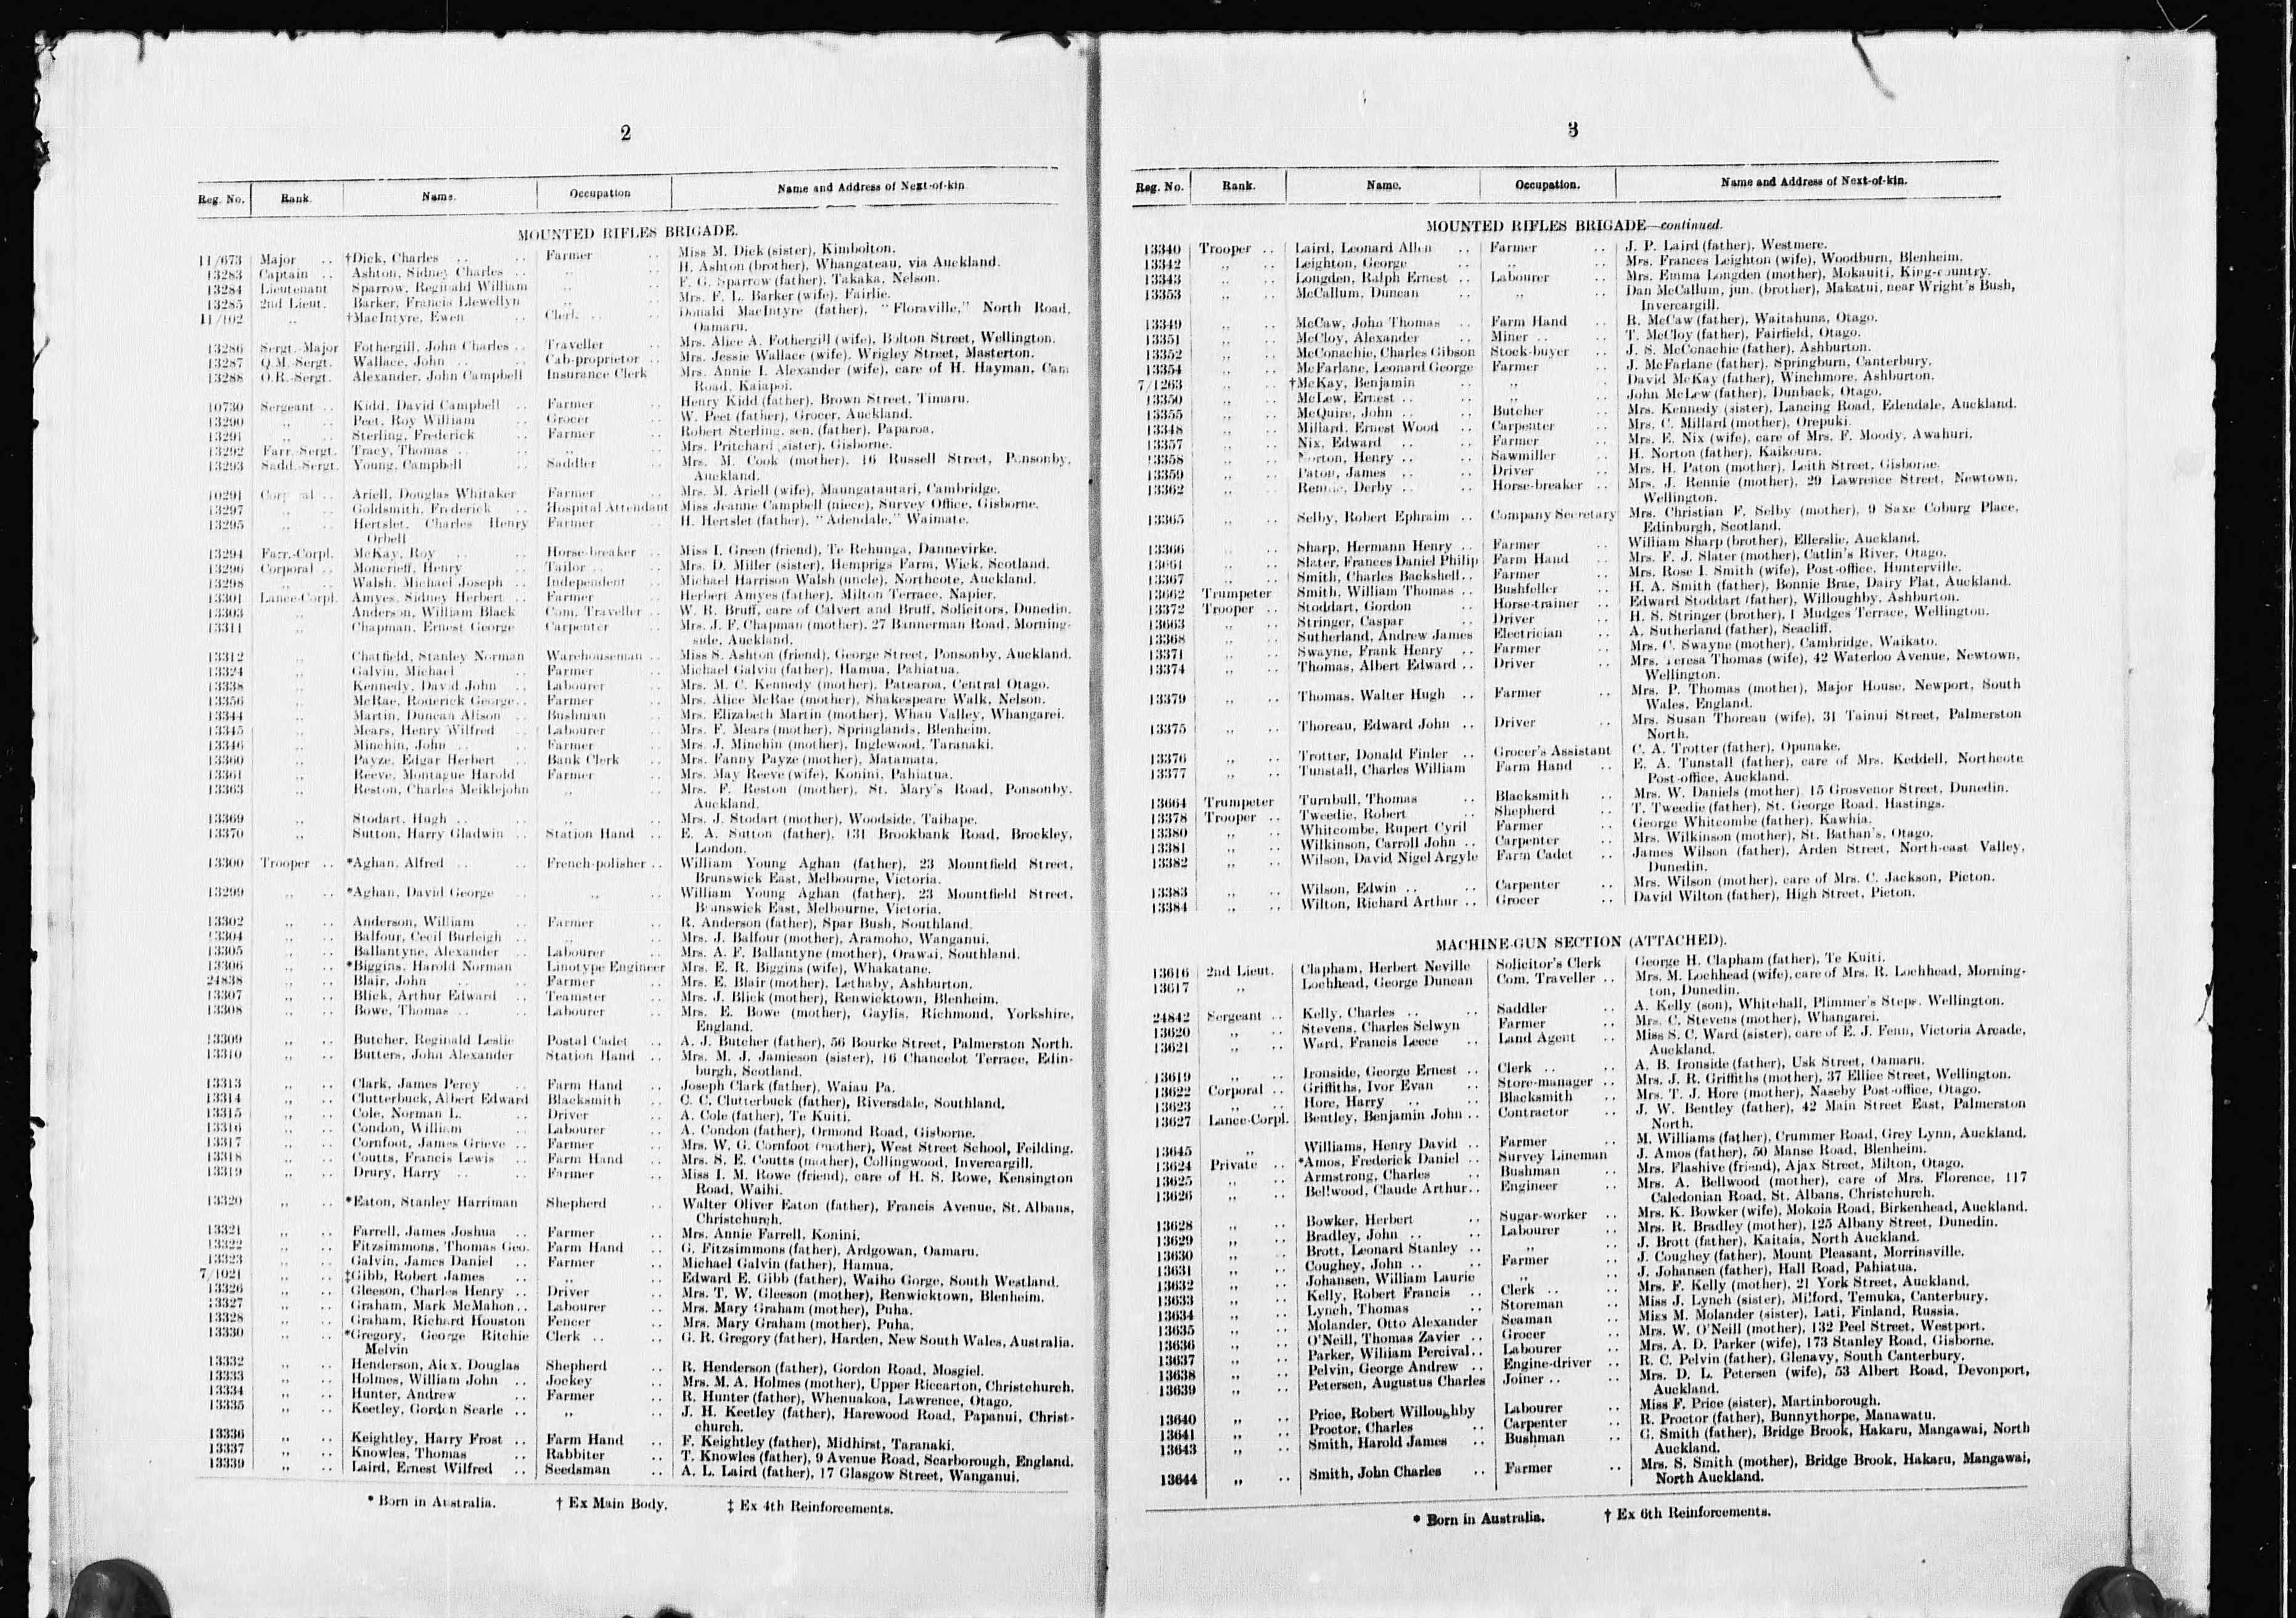 2
Reg. No. Rank. Name. Occupation Name and Address of Next-of-kin
MOUNTED RIFLES BRIGADE.
11/673 Major .. †Dick, Charles .. .. Farmer .. Miss M. Dick (sister), Kimbolton.
13283 Captain .. Ashton, Sidney Charles .. ,, .. H. Ashton (brother), Whangateau, via Auckland.
13284 Lieutenant Sparrow, Reginald William ,, .. F. G. Sparrow (father), Takaka, Nelson.
13285 2nd Lieut. Barker, Francis Llewellyn ,, .. Mrs. F. L. Barker (wife), Fairlie.
11/102 ,, †MacIntyre, Ewen .. Clerk .. .. Donald MacIntyre (father), "Floraville," North Road,
Oamaru.
13286 Sergt.-Major Fothergill, John Charles .. Traveller .. Mrs. Alice A. Fothergill (wife), Bolton Street, Wellington.
13287 Q.M.-Sergt. Wallace, John .. .. Cab-proprietor .. Mrs. Jessie Wallace (wife), Wrigley Street, Masterton.
13288 O.R.-Sergt. Alexander, John Campbell Insurance Clerk Mrs. Annie I. Alexander (wife), care of H. Hayman, Cam
Road, Kaiapoi.
10730 Sergeant .. Kidd, David Campbell .. Farmer .. Henry Kidd (father), Brown Street, Timaru.
13290 ,, .. Peet, Roy William .. Grocer .. W. Peet (father), Grocer, Auckland.
13291 ,, .. Sterling, Frederick .. Farmer .. Robert Sterling, sen. (father), Paparoa.
13292 Farr.-Sergt. Tracy, Thomas .. .. ,, .. Mrs. Pritchard (sister), Gisborne.
13293 Sadd.-Sergt. Young, Campbell .. Saddler .. Mrs. M. Cook (mother), 16 Russell Street, Ponsonby,
Auckland.
10291 Corporal .. Ariell, Douglas Whitaker Farmer .. Mrs. M. Ariell (wife), Maungatautari, Cambridge.
13297 ,, .. Goldsmith, Frederick .. Hospital Attendant Miss Jeanne Campbell (niece), Survey Office, Gisborne.
13295 ,, .. Hertslet, Charles Henry Farmer .. H. Hertslet (father), "Adendale," Waimate.
Orbell
13294 Farr.-Corpl. McKay, Roy .. .. Horse-breaker .. Miss I. Green (friend), Te Rehunga, Dannevirke.
13296 Corporal .. Moncrieff, Henry .. Tailor .. .. Mrs. D. Miller (sister), Hemprigs Farm, Wick, Scotland.
13298 ,, .. Walsh, Michael Joseph .. Independent .. Michael Harrison Walsh (uncle), Northcote, Auckland.
13301 Lance-Corpl. Amyes, Sidney Herbert .. Farmer .. Herbert Amyes (father), Milton Terrace, Napier.
13303 ,, Anderson, William Black Com. Traveller .. W. R. Bruff, care of Calvert and Bruff, Solicitors, Dunedin.
13311 ,, Chapman, Ernest George Carpenter .. Mrs. J. F. Chapman (mother), 27 Bannerman Road, Morning-
side, Auckland.
13312 ,, Chatfield, Stanley Norman Warehouseman .. Miss S. Ashton (friend), George Street, Ponsonby, Auckland.
13324 ,, Galvin, Michael .. Farmer .. Michael Galvin (father), Hamua, Pahiatua.
13338 ,, Kennedy, David John .. Labourer .. Mrs. M. C. Kennedy (mother), Patearoa, Central Otago.
13356 ,, McRae, Roderick George.. Farmer .. Mrs. Alice McRae (mother), Shakespeare Walk, Nelson.
13344 ,, Martin, Duncan Alison .. Bushman .. Mrs. Elizabeth Martin (mother), Whau Valley, Whangarei.
13345 ,, Mears, Henry Wilfred .. Labourer .. Mrs. F. Mears (mother), Springlands, Blenheim.
13346 ,, Minchin, John .. .. Farmer .. Mrs. J. Minchin (mother), Inglewood, Taranaki.
13360 ,, Payze, Edgar Herbert .. Bank Clerk .. Mrs. Fanny Payze (mother), Matamata.
13361 ,, Reeve, Montague Harold Farmer .. Mrs. May Reeve (wife), Konini, Pahiatua.
13363 ,, Reston, Charles Meiklejohn ,, .. Mrs. F. Reston (mother), St. Mary's Road, Ponsonby,
Auckland.
13369 ,, Stodart, Hugh .. .. ,, .. Mrs. J. Stodart (mother), Woodside, Taihape.
13370 ,, Sutton, Harry Gladwin .. Station Hand .. E. A. Sutton (father), 131 Brookbank Road, Brockley,
London.
13300 Trooper .. *Aghan, Alfred .. .. French-polisher .. William Young Aghan (father), 23 Mountfield Street,
Brunswick East, Melbourne, Victoria.
13299 ,, .. *Aghan, David George .. ,, .. William Young Aghan (father), 23 Mountfield Street,
Brunswick East, Melbourne, Victoria.
13302 ,, .. Anderson, William .. Farmer .. R. Anderson (father), Spar Bush, Southland.
13304 ,, .. Balfour, Cecil Burleigh .. ,, .. Mrs. J. Balfour (mother), Aramoho, Wanganui.
13305 ,, .. Ballantyne, Alexander .. Labourer .. Mrs. A. F. Ballantyne (mother), Orawai, Southland.
13306 ,, .. *Biggins, Harold Norman Linotype Engineer Mrs. E. R. Biggins (wife), Whakatane.
24838 ,, .. Blair, John .. .. Farmer .. Mrs. E. Blair (mother), Lethaby, Ashburton.
13307 ,, .. Blick, Arthur Edward .. Teamster .. Mrs. J. Blick (mother), Renwicktown, Blenheim.
13308 ,, .. Bowe, Thomas .. .. Labourer .. Mrs. E. Bowe (mother), Gaylis, Richmond, Yorkshire,
England.
13309 ,, .. Butcher, Reginald Leslie Postal Cadet .. A. J. Butcher (father), 56 Bourke Street, Palmerston North.
13310 ,, .. Butters, John Alexander Station Hand .. Mrs. M. J. Jamieson (sister), 16 Chancelot Terrace, Edin-
burgh, Scotland.
13313 ,, .. Clark, James Percy .. Farm Hand .. Joseph Clark (father), Waiau Pa.
13314 ,, .. Clutterbuck, Albert Edward Blacksmith .. C. C. Clutterbuck (father), Riversdale, Southland.
13315 ,, .. Cole, Norman L. .. Driver .. A. Cole (father), Te Kuiti.
13316 ,, .. Condon, William .. Labourer .. A. Condon (father), Ormond Road, Gisborne.
13317 ,, .. Cornfoot, James Grieve .. Farmer .. Mrs. W. G. Cornfoot (mother), West Street School, Feilding.
13318 ,, .. Coutts, Francis Lewis .. Farm Hand .. Mrs. S. E. Coutts (mother), Collingwood, Invercargill.
13319 ,, .. Drury, Harry .. .. Farmer .. Miss I. M. Rowe (friend), care of H. S. Rowe, Kensington
Road, Waihi.
13320 ,, .. *Eaton, Stanley Harriman Shepherd .. Walter Oliver Eaton (father), Francis Avenue, St. Albans,
Christchurch.
13321 ,, .. Farrell, James Joshua .. Farmer .. Mrs. Annie Farrell, Konini.
13322 ,, .. Fitzsimmons, Thomas Geo. Farm Hand .. G. Fitzsimmons (father), Ardgowan, Oamaru.
13323 ,, .. Galvin, James Daniel .. Farmer .. Michael Galvin (father), Hamua.
7/1021 ,, .. ‡Gibb, Robert James .. ,, .. Edward E. Gibb (father), Waiho Gorge, South Westland.
13326 ,, .. Gleeson, Charles Henry .. Driver .. Mrs. T. W. Gleeson (mother), Renwicktown, Blenheim.
13327 ,, .. Graham, Mark McMahon.. Labourer .. Mrs. Mary Graham (mother), Puha.
13328 ,, .. Graham, Richard Houston Fencer .. Mrs. Mary Graham (mother), Puha.
13330 ,, .. *Gregory, George Ritchie Clerk .. .. G. R. Gregory (father), Harden, New South Wales, Australia.
Melvin
13332 ,, .. Henderson, Alex. Douglas Shepherd .. R. Henderson (father), Gordon Road, Mosgiel.
13333 ,, .. Holmes, William John .. Jockey .. Mrs. M. A. Holmes (mother), Upper Riccarton, Christchurch.
13334 ,, .. Hunter, Andrew .. Farmer .. R. Hunter (father), Whenuakoa, Lawrence, Otago.
13335 ,, .. Keetley, Gordon Searle .. ,, .. J. H. Keetley (father), Harewood Road, Papanui, Christ-
church.
13336 ,, .. Keightley, Harry Frost .. Farm Hand .. F. Keightley (father), Midhirst, Taranaki.
13337 ,, .. Knowles, Thomas .. Rabbiter .. T. Knowles (father), 9 Avenue Road, Scarborough, England.
13339 ,, .. Laird, Ernest Wilfred .. Seedsman .. A. L. Laird (father), 17 Glasgow Street, Wanganui.
* Born in Australia. † Ex Main Body. ‡ Ex 4th Reinforcements.
3
Reg. No. Rank. Name. Occupation. Name and Address of Next-of-kin.
MOUNTED RIFLES BRIGADE—continued.
13340 Trooper .. Laird, Leonard Allen .. Farmer .. J. P. Laird (father), Westmere.
13342 ,, .. Leighton, George .. ,, .. Mrs. Frances Leighton (wife), Woodburn, Blenheim.
13343 ,, .. Longden, Ralph Ernest .. Labourer .. Mrs. Emma Longden (mother), Mokauiti, King-country.
13353 ,, .. McCallum, Duncan .. ,, .. Dan McCallum, jun. (brother), Maketui, near Wright's Bush,
Invercargill.
13349 ,, .. McCaw, John Thomas .. Farm Hand .. R. McCaw (father), Waitahuna, Otago.
13351 ,, .. McCloy, Alexander .. Miner .. .. T. McCloy (father), Fairfield, Otago.
13352 ,, .. McConachie, Charles Gibson Stock-buyer .. J. S. McConachie (father), Ashburton.
13354 ,, .. McFarlane, Leonard George Farmer .. J. McFarlane (father), Springburn, Canterbury.
7/1263 ,, .. †McKay, Benjamin .. ,, .. David McKay (father), Winchmore, Ashburton.
13350 ,, .. McLew, Ernest .. .. ,, .. John McLew (father), Dunback, Otago.
13355 ,, .. McQuire, John .. .. Butcher .. Mrs. Kennedy (sister), Lancing Road, Edendale, Auckland.
13348 ,, .. Millard, Ernest Wood .. Carpenter .. Mrs. C. Millard (mother), Orepuki.
13357 ,, .. Nix, Edward .. .. Farmer .. Mrs. E. Nix (wife), care of Mrs. F. Moody, Awahuri.
13358 ,, .. Norton, Henry .. .. Sawmiller .. H. Norton (father), Kaikoura.
13359 ,, .. Paton, James .. .. Driver .. Mrs. H. Paton (mother), Leith Street, Gisborne.
13362 ,, .. Rennie, Derby .. .. Horse-breaker .. Mrs. J. Rennie (mother), 29 Lawrence Street, Newtown,
Wellington.
13365 ,, .. Selby, Robert Ephraim .. Company Secretary Mrs. Christian F. Selby (mother), 9 Saxe Coburg Place,
Edinburgh, Scotland.
13366 ,, .. Sharp, Hermann Henry .. Farmer .. William Sharp (brother), Ellerslie, Auckland.
13661 ,, .. Slater, Frances Daniel Philip Farm Hand .. Mrs. F. J. Slater (mother), Catlin's River, Otago.
13367 ,, .. Smith, Charles Backshell.. Farmer .. Mrs. Rose I. Smith (wife), Post-office, Hunterville.
13662 Trumpeter Smith, William Thomas .. Bushfeller .. H. A. Smith (father), Bonnie Brae, Dairy Flat, Auckland.
13372 Trooper .. Stoddart, Gordon .. Horse-trainer .. Edward Stoddart (father), Willoughby, Ashburton.
13663 ,, .. Stringer, Caspar .. Driver .. H. S. Stringer (brother), 1 Mudges Terrace, Wellington.
13368 ,, .. Sutherland, Andrew James Electrician .. A. Sutherland (father), Seacliff.
13371 ,, .. Swayne, Frank Henry .. Farmer .. Mrs. C. Swayne (mother), Cambridge, Waikato.
13374 ,, .. Thomas, Albert Edward .. Driver .. Mrs. Teresa Thomas (wife), 42 Waterloo Avenue, Newtown,
Wellington.
13379 ,, .. Thomas, Walter Hugh .. Farmer .. Mrs. P. Thomas (mother), Major House, Newport, South
Wales, England.
13375 ,, .. Thoreau, Edward John .. Driver .. Mrs. Susan Thoreau (wife), 31 Tainui Street, Palmerston
North.
13376 ,, .. Trotter, Donald Finler .. Grocer's Assistant C. A. Trotter (father), Opunake.
13377 ,, .. Tunstall, Charles William Farm Hand .. E. A. Tunstall (father), care of Mrs. Keddell, Northcote
Post-office, Auckland.
13664 Trumpeter Turnbull, Thomas .. Blacksmith .. Mrs. W. Daniels (mother) 15 Grosvenor Street, Dunedin.
13378 Trooper .. Tweedie, Robert .. Shepherd .. T. Tweedie (father), St. George Road, Hastings.
13380 ,, .. Whitcombe, Rupert Cyril Farmer .. George Whitcombe (father), Kawhia.
13381 ,, .. Wilkinson, Carroll John .. Carpenter .. Mrs. Wilkinson (mother), St. Bathan's, Otago.
13382 ,, .. Wilson, David Nigel Argyle Farm Cadet .. James Wilson (father), Arden Street, North-east Valley,
Dunedin.
13383 ,, .. Wilson, Edwin .. .. Carpenter .. Mrs. Wilson (mother), care of Mrs. C. Jackson, Picton.
13384 ,, .. Wilton, Richard Arthur .. Grocer .. David Wilton (father), High Street, Picton.
MACHINE-GUN SECTION (ATTACHED).
13616 2nd Lieut. Clapham, Herbert Neville Solicitor's Clerk George H. Clapham (father), Te Kuiti.
13617 ,, Lochhead, George Duncan Com. Traveller .. Mrs. M. Lochhead (wife), care of Mrs. R. Lochhead, Morning-
ton, Dunedin.
24842 Sergeant .. Kelly, Charles .. .. Saddler .. A. Kelly (son), Whitehall, Plimmer's Steps, Wellington.
13620 ,, .. Stevens, Charles Selwyn Farmer .. Mrs. C. Stevens (mother), Whangarei.
13621 ,, .. Ward, Francis Leece .. Land Agent .. Miss S. C. Ward (sister), care of E. J. Fenn, Victoria Arcade,
Auckland.
13619 ,, .. Ironside, George Ernest .. Clerk .. .. A. B. Ironside (father), Usk Street, Oamaru.
13622 Corporal .. Griffiths, Ivor Evan .. Store-manager .. Mrs. J. R. Griffiths (mother), 37 Ellice Street, Wellington.
13623 ,, .. Hore, Harry .. .. Blacksmith .. Mrs. T. J. Hore (mother), Naseby Post-office, Otago.
13627 Lance-Corpl. Bentley, Benjamin John .. Contractor .. J. W. Bentley (father), 42 Main Street East, Palmerston
North.
13645 ,, Williams, Henry David .. Farmer .. M. Williams (father), Crummer Road, Grey Lynn, Auckland.
13624 Private .. *Amos, Frederick Daniel .. Survey Lineman J. Amos (father), 50 Manse Road, Blenheim.
13625 ,, .. Armstrong, Charles .. Bushman .. Mrs. Flashive (friend), Ajax Street, Milton, Otago.
13626 ,, .. Bellwood, Claude Arthur.. Engineer .. Mrs. A. Bellwood (mother), care of Mrs. Florence, 117
Caledonian Road, St. Albans, Christchurch.
13628 ,, .. Bowker, Herbert .. Sugar-worker .. Mrs. K. Bowker (wife), Mokoia Road, Birkenhead, Auckland.
13629 ,, .. Bradley, John .. .. Labourer .. Mrs. R. Bradley (mother), 125 Albany Street, Dunedin.
13630 ,, .. Brott, Leonard Stanley .. ,, .. J. Brott (father), Kaitaia, North Auckland.
13631 ,, .. Coughey, John .. .. Farmer .. J. Coughey (father), Mount Pleasant, Morrinsville.
13632 ,, .. Johansen, William Laurie ,, .. J. Johansen (father), Hall Road, Pahiatua.
13633 ,, .. Kelly, Robert Francis .. Clerk .. .. Mrs. F. Kelly (mother), 21 York Street, Auckland.
13634 ,, .. Lynch, Thomas .. Storeman .. Miss J. Lynch (sister), Milford, Temuka, Canterbury.
13635 ,, .. Molander, Otto Alexander Seaman .. Miss M. Molander (sister), Lati, Finland, Russia.
13636 ,, .. O'Neill, Thomas Zavier .. Grocer .. Mrs. W. O'Neill (mother), 132 Peel Street, Westport.
13637 ,, .. Parker, William Percival.. Labourer .. Mrs. A. D. Parker (wife), 173 Stanley Road, Gisborne.
13638 ,, .. Pelvin, George Andrew .. Engine-driver .. R. C. Pelvin (father), Glenavy, South Canterbury.
13639 ,, .. Petersen, Augustus Charles Joiner .. .. Mrs. D. L. Petersen (wife), 53 Albert Road, Devonport,
Auckland.
13640 ,, .. Price, Robert Willoughby Labourer .. Miss F. Price (sister), Martinborough.
13641 ,, .. Proctor, Charles .. Carpenter .. R. Proctor (father), Bunnythorpe, Manawatu.
13643 ,, .. Smith, Harold James .. Bushman .. G. Smith (father), Bridge Brook, Hakaru, Mangawai, North
Auckland.
13644 ,, .. Smith, John Charles .. Farmer .. Mrs. S. Smith (mother), Bridge Brook, Hakaru, Mangawai,
North Auckland.
* Born in Australia. † Ex 6th Reinforcements.